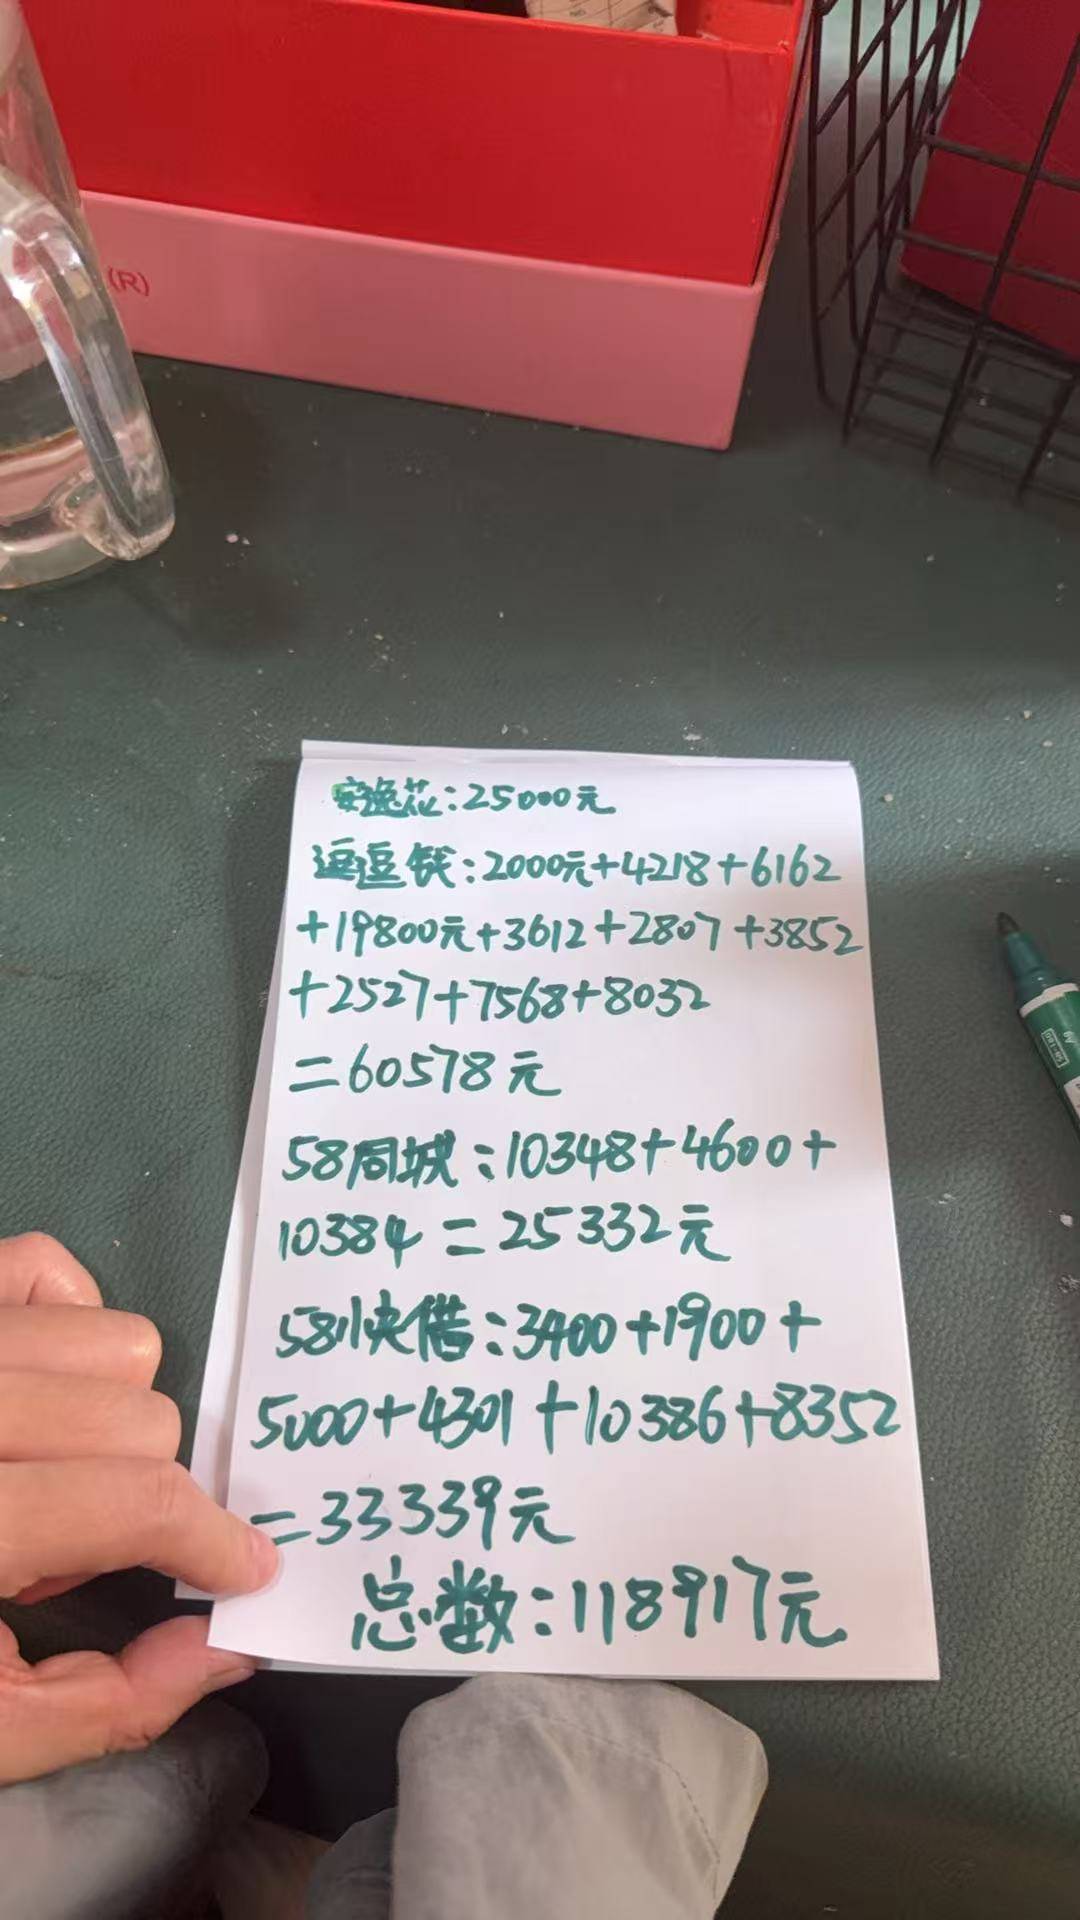 (R)
安逸花:25000元
逗逗钱:2000元+4218+6162
+19800元+3612+2807+3852
+2527+7568+8032
=60578元
58同城:10348+4600+
10384=25332元
58小快借:3400+1900+
5000+4301+10386+8352
=33339元
总数:118917元